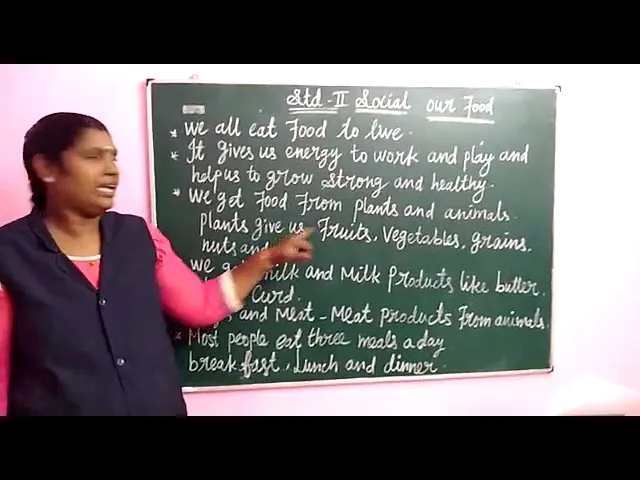 Std - II Social our Food
* We all eat Food to live.
* It gives us energy to work and play and
help us to grow strong and healthy.
* We get Food From plants and animals.
plants give us Fruits, Vegetables, grains.
nuts and
We milk and Milk products like butter.
Curd.
and Meat - Meat products From animals.
* Most people eat three meals a day
breakfast, Lunch and dinner.